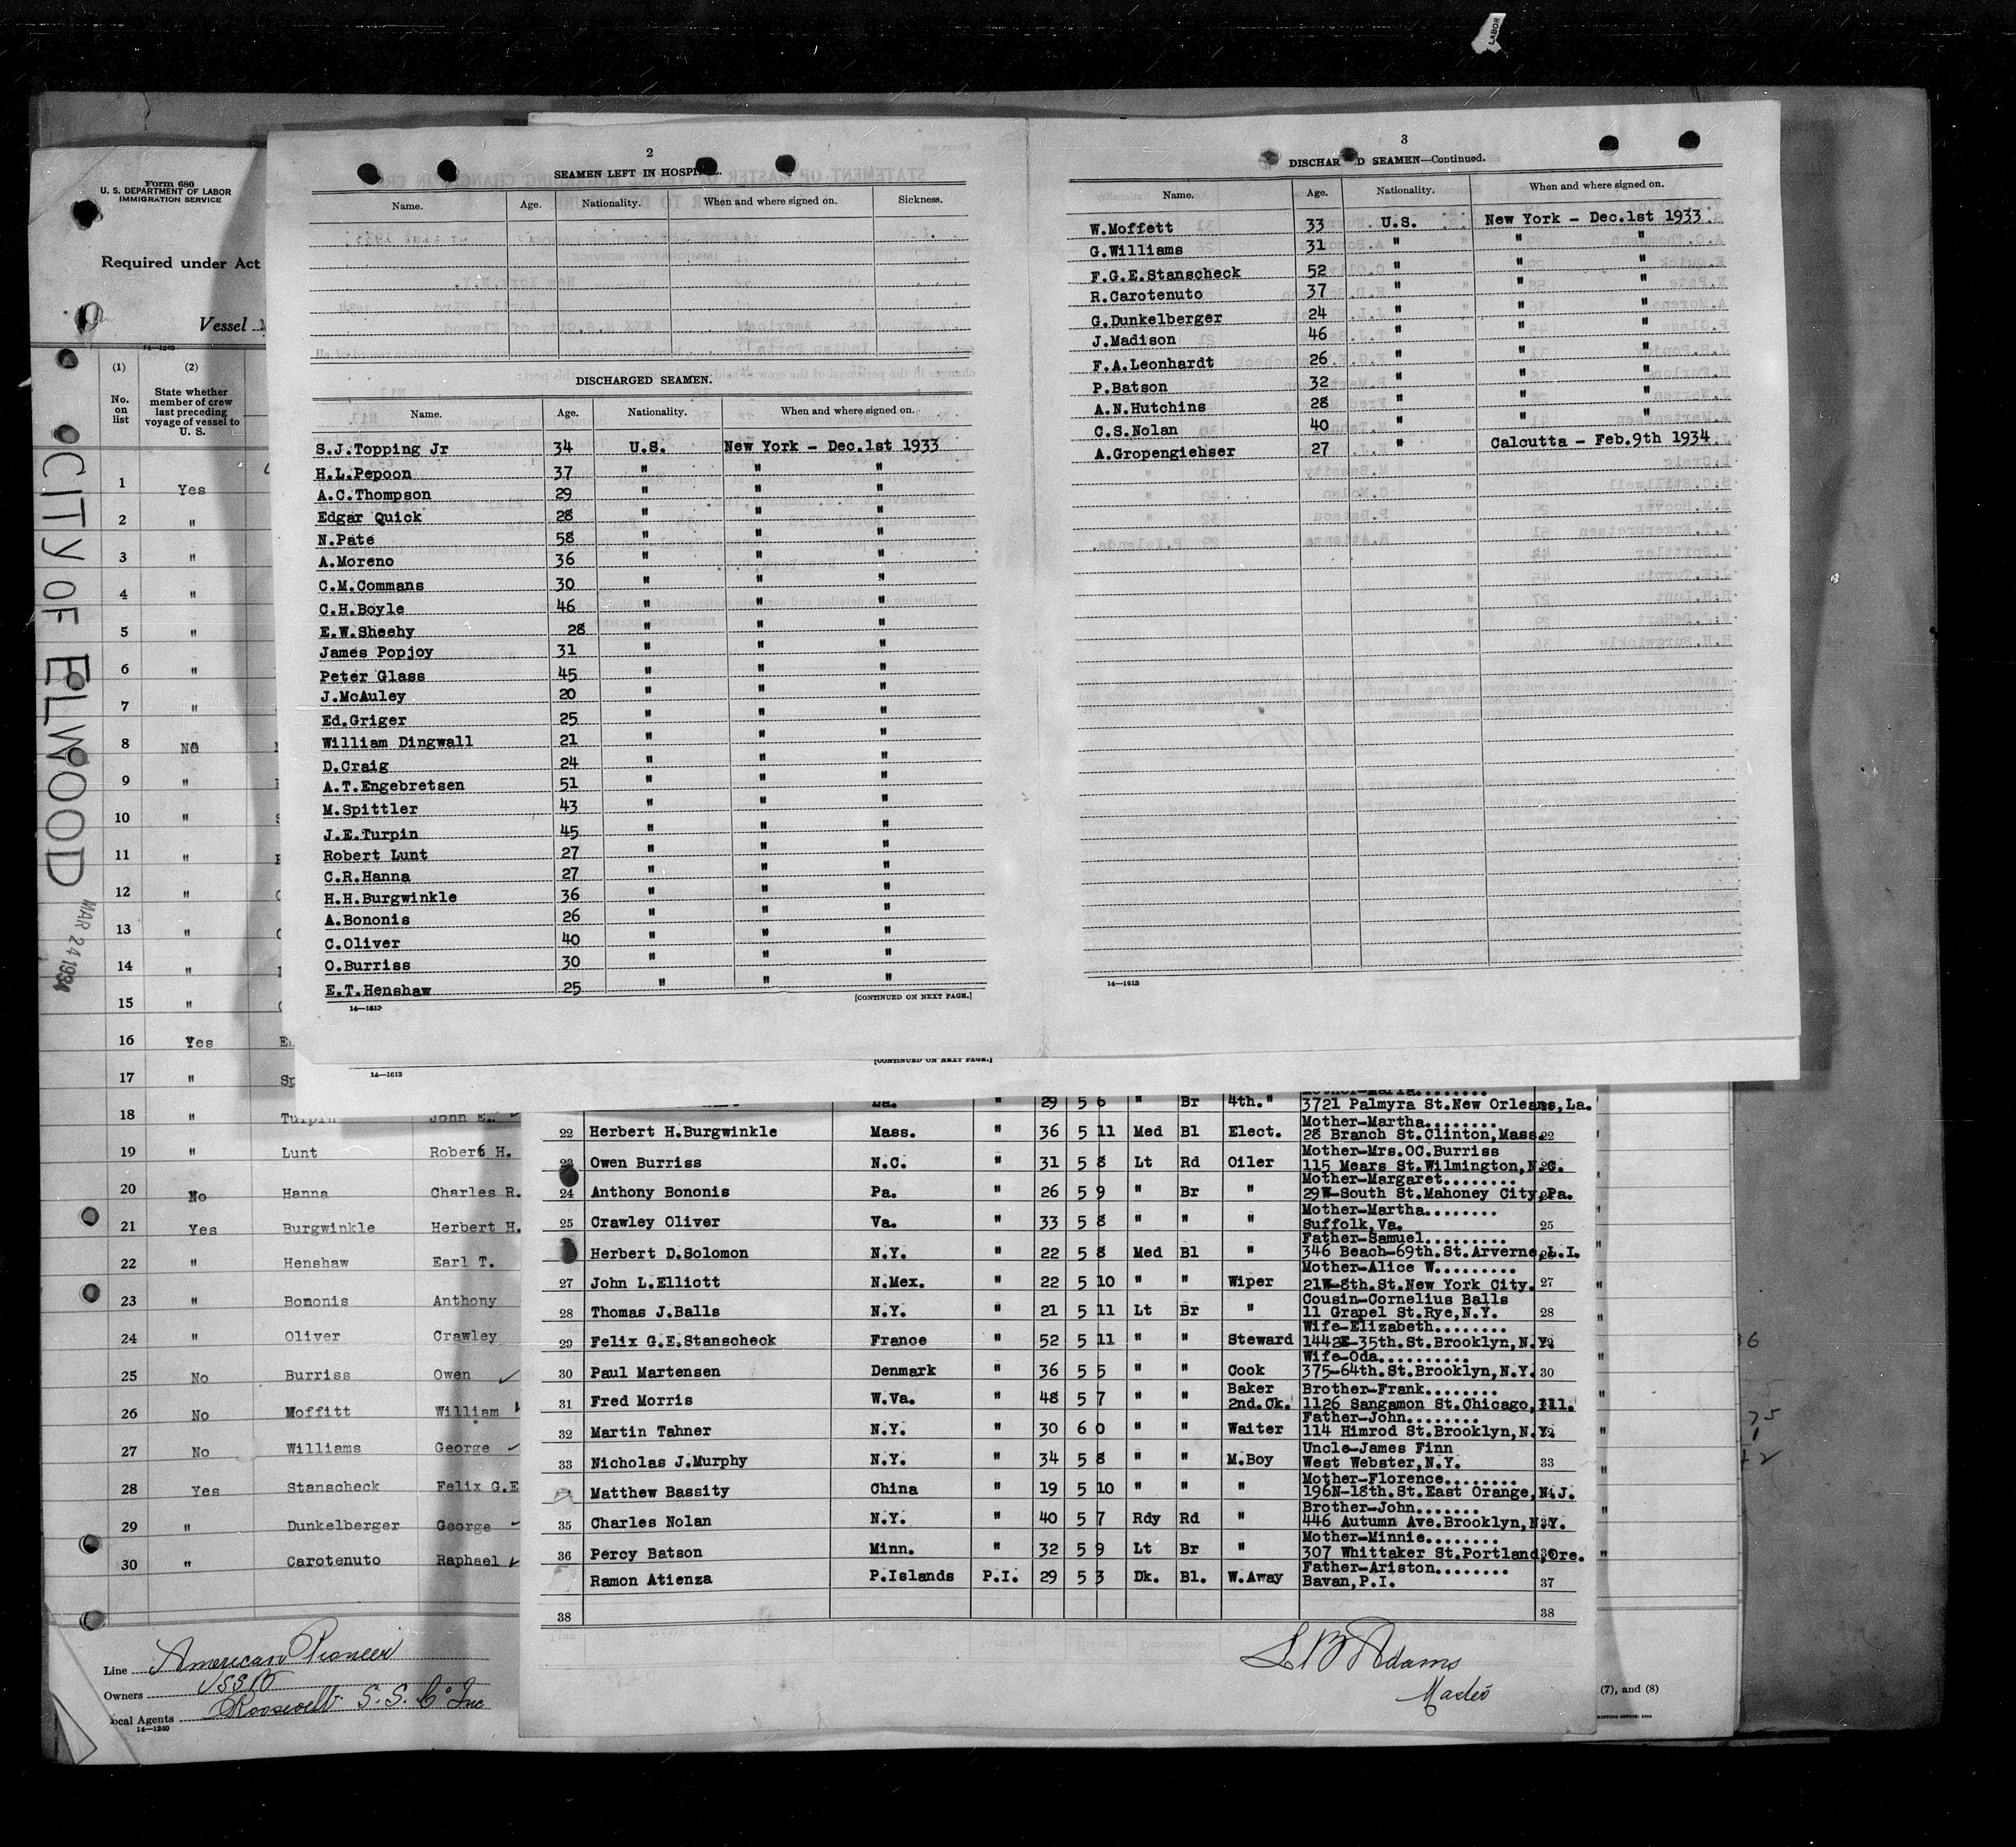 LABOR
Form 680
U. S. DEPARTMENT OF LABOR
IMMIGRATION SERVICE
Required under Act
Vessel
14—1240
(1) (2)
No. on list
State whether member of crew last preceding voyage of vessel to U. S.
CITY OF ELWOOD
MAR 24 1934
1 Yes
2 "
3 "
4 "
5 "
6 "
7 "
8 No
9 "
10 "
11 "
12 "
13 "
14 "
15 "
16 Yes
17 " Sp
18 " Turpin John E.
19 " Lunt Robert H.
20 No Hanna Charles R.
21 Yes Burgwinkle Herbert H.
22 " Henshaw Earl T.
23 " Bononis Anthony
24 " Oliver Crawley
25 No Burriss Owen
26 No Moffitt William
27 No Williams George
28 Yes Stanscheck Felix G.E
29 " Dunkelberger George
30 " Carotenuto Raphael
Line American Pioneer
Owners USSB
Local Agents Roosevelt S.S. Co Inc
14—1240
2
SEAMEN LEFT IN HOSPITAL.
Name. Age. Nationality. When and where signed on. Sickness.
DISCHARGED SEAMEN.
Name. Age. Nationality. When and where signed on.
S.J.Topping Jr 34 U.S. New York - Dec.1st 1933
H.L.Pepoon 37 " " "
A.C.Thompson 29 " " "
Edgar Quick 28 " " "
N.Pate 58 " " "
A.Moreno 36 " " "
C.M.Commans 30 " " "
C.H.Boyle 46 " " "
E.W.Sheehy 28 " " "
James Popjoy 31 " " "
Peter Glass 45 " " "
J.McAuley 20 " " "
Ed.Griger 25 " " "
William Dingwall 21 " " "
D.Craig 24 " " "
A.T.Engebretsen 51 " " "
M.Spittler 43 " " "
J.E.Turpin 45 " " "
Robert Lunt 27 " " "
C.R.Hanna 27 " " "
H.H.Burgwinkle 36 " " "
A.Bononis 26 " " "
C.Oliver 40 " " "
O.Burriss 30 " " "
E.T.Henshaw 25 " " "
[CONTINUED ON NEXT PAGE.]
14—1613
3
DISCHARGED SEAMEN—Continued.
Name. Age. Nationality. When and where signed on.
W.Moffett 33 U.S. New York - Dec.1st 1933
G.Williams 31 " " "
F.G.E.Stanscheck 52 " " "
R.Carotenuto 37 " " "
G.Dunkelberger 24 " " "
J.Madison 46 " " "
F.A.Leonhardt 26 " " "
P.Batson 32 " " "
A.N.Hutchins 28 " " "
C.S.Nolan 40 " " "
A.Gropengiehser 27 " Calcutta - Feb.9th 1934
14—1613
[CONTINUED ON NEXT PAGE.]
14—1613
La. " 29 5 6 " Br 4th." 3721 Palmyra St.New Orleans,La.
22 Herbert H.Burgwinkle Mass. " 36 5 11 Med Bl Elect. Mother-Martha........ 28 Branch St.Clinton,Mass. 22
23 Owen Burriss N.C. " 31 5 8 Lt Rd Oiler Mother-Mrs.OC.Burriss 115 Mears St.Wilmington,N.C.
24 Anthony Bononis Pa. " 26 5 9 " Br " Mother-Margaret........ 29W-South St.Mahoney City,Pa.
25 Crawley Oliver Va. " 33 5 8 " " " Mother-Martha........ Suffolk,Va. 25
Herbert D.Solomon N.Y. " 22 5 8 Med Bl " Father-Samuel......... 346 Beach-69th.St.Arverne,L.I.
27 John L.Elliott N.Mex. " 22 5 10 " " Wiper Mother-Alice W......... 21W-8th.St.New York City. 27
28 Thomas J.Balls N.Y. " 21 5 11 Lt Br " Cousin-Cornelius Balls 11 Grapel St.Rye,N.Y. 28
29 Felix G.E.Stanscheck France " 52 5 11 " " Steward Wife-Elizabeth........ 1442E-35th.St.Brooklyn,N.Y. 29
30 Paul Martensen Denmark " 36 5 5 " " Cook Wife-Oda.......... 375-64th.St.Brooklyn,N.Y. 30
31 Fred Morris W.Va. " 48 5 7 " " Baker 2nd.Ck. Brother-Frank........ 1126 Sangamon St.Chicago,Ill.
32 Martin Tahner N.Y. " 30 6 0 " " Waiter Father-John........ 114 Himrod St.Brooklyn,N.Y.
33 Nicholas J.Murphy N.Y. " 34 5 8 " " M.Boy Uncle-James Finn West Webster,N.Y. 33
Matthew Bassity China " 19 5 10 " " " Mother-Florence........ 196N-18th.St.East Orange,N.J.
35 Charles Nolan N.Y. " 40 5 7 Rdy Rd " Brother-John....... 446 Autumn Ave.Brooklyn,N.Y.
36 Percy Batson Minn. " 32 5 9 Lt Br " Mother-Minnie........ 307 Whittaker St.Portland,Ore.
Ramon Atienza P.Islands P.I. 29 5 3 Dk. Bl. W.Away Father-Ariston........ Bavan,P.I. 37
38 38
L B Adams
Master
(7), and (8)